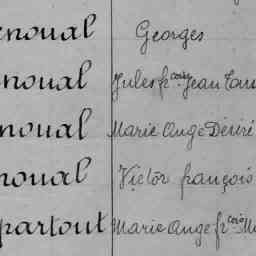 enoual Georges
noual Jules fçois Jean
noual Marie Ange Désiré
noual Victor françois
partout Marie Ange fçois